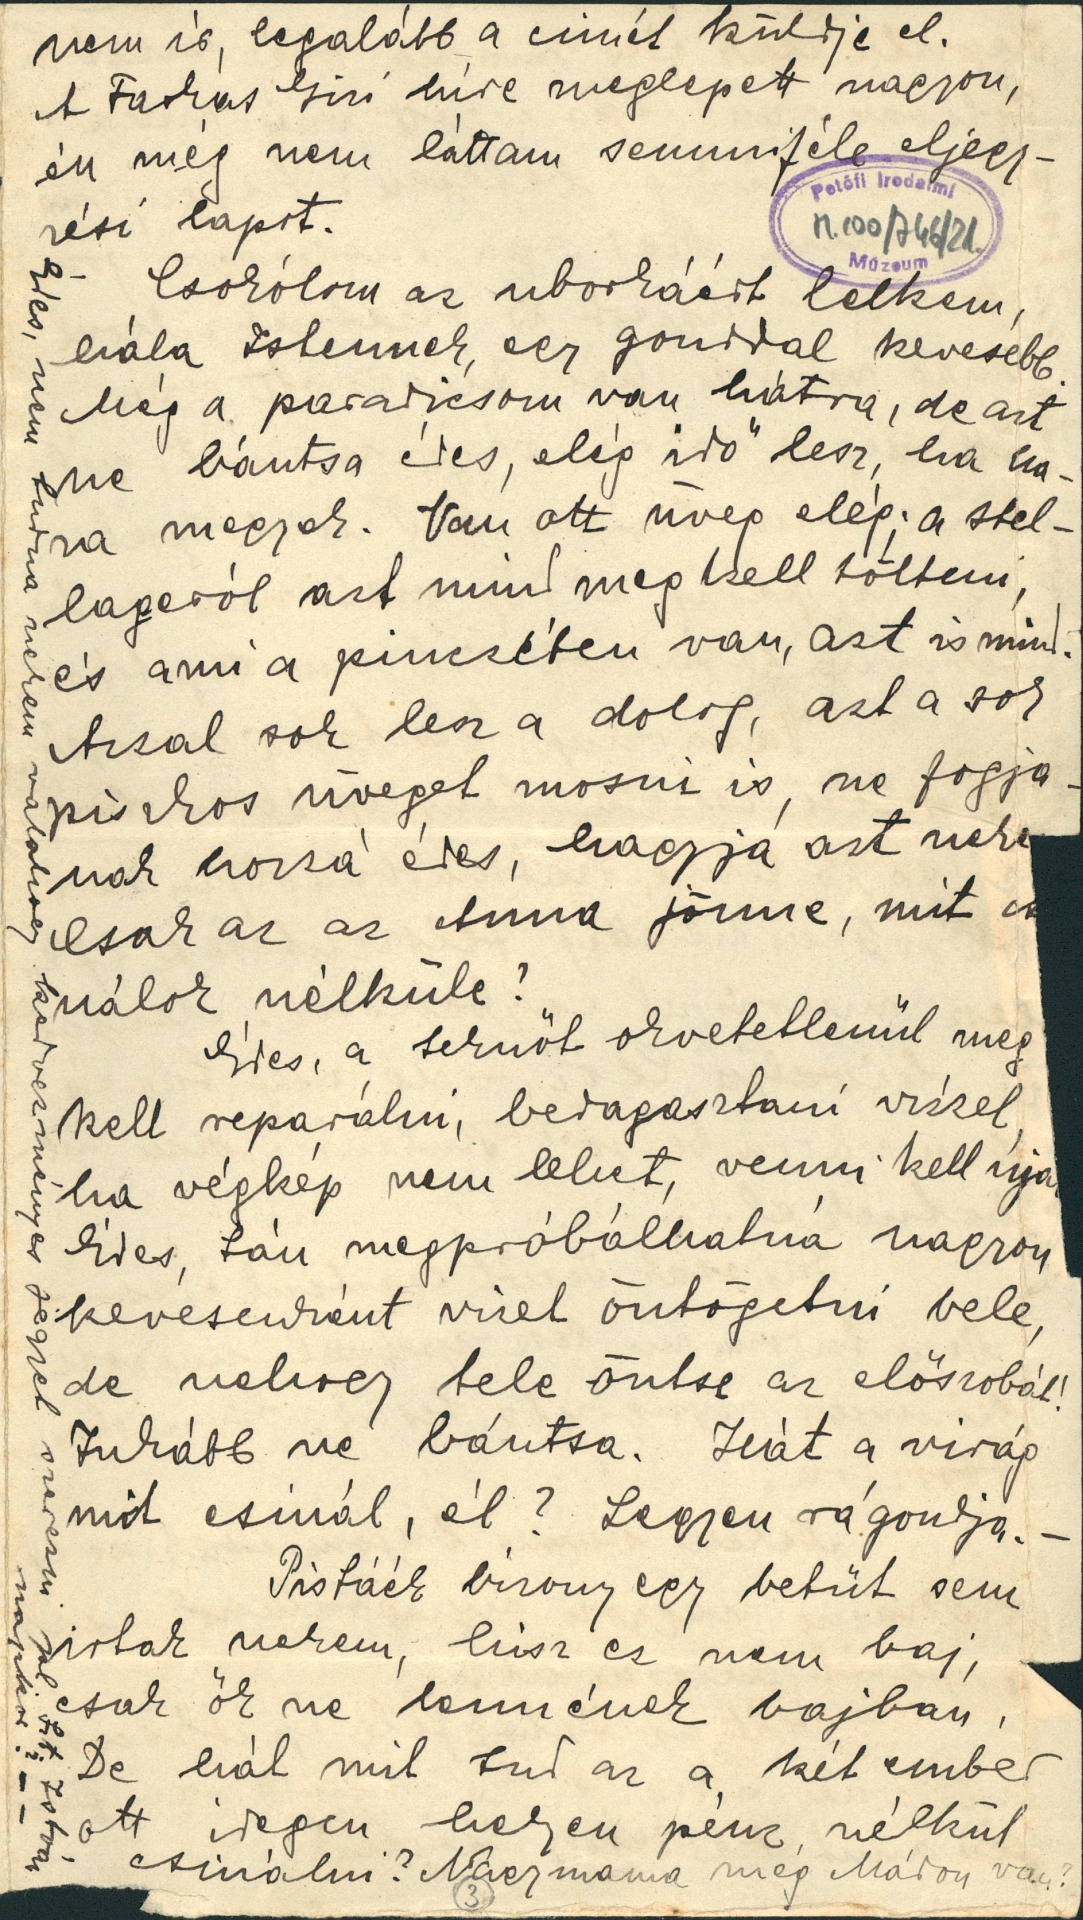 nem is, legalább a cimét küldje el.
A Farkas Gizi hire meglepett nagyon,
én még nem láttam semmiféle eljegy-
zési lapot.
Petőfi Irodalmi
Múzeum
Csókolom az uborkáért lelkem,
hála Istennek, egy gonddal kevesebb.
Még a paradicsom van hátra, de azt
ne bántsa édes, elég idő lesz, ha ha-
za megyek. Van ott üveg elég; a stel-
lageról azt mind meg kell tölteni,
és ami a pinczében van, azt is mind.
Azzal sok lesz a dolog, azt a sok
piszkos üveget mosni is, ne fogja-
nak hozzá édes, hagyja azt neke
Csak az az Anna jönne, mit cs
nálok nélküle?
Édes, a teknőt okvetetlenül meg
kell reparálni, bedagasztani vizzel,
ha végkép nem lehet, venni kell uja
Édes, tán megpróbálhatná nagyon
kevesenként vizet öntögetni bele,
de nehogy tele öntse az előszobát!
Inkább ne bántsa. Hát a virág
mit csinál, él? Legyen rá gondja. –
Pistáék bizony egy betüt sem
irtak nekem, hisz ez nem baj,
csak ők ne lennének bajban.
De hát mit tud az a két ember
ott idegen helyen pénz nélkül
csinálni? Nagymama még Mádon van?
3
Édes, nem tudna nekem valahogy kedvezményes jegyet szerezni
Szt. István
napkor? – –